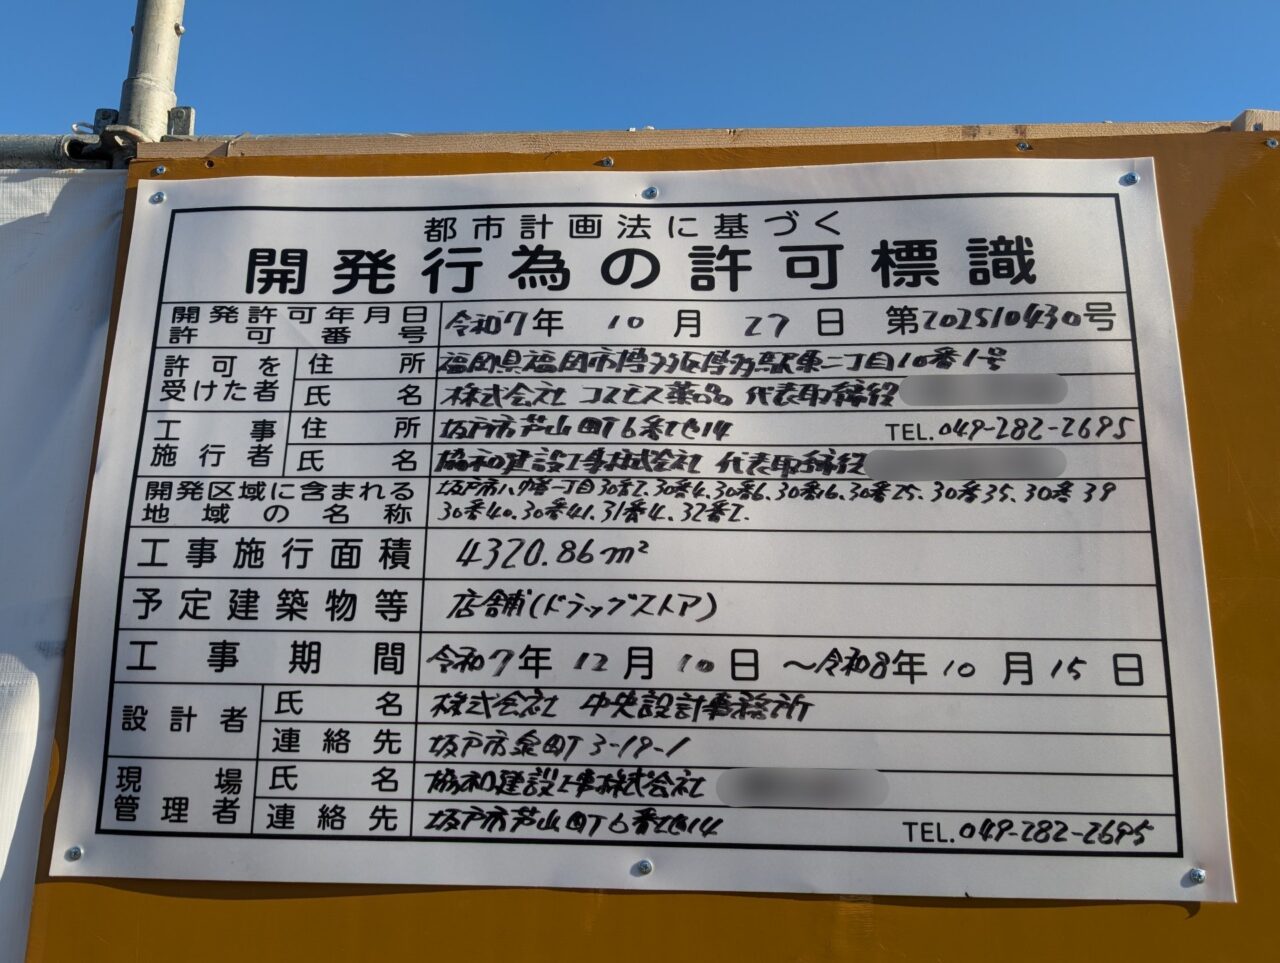 都市計画法に基づく
開発行為の許可標識
開発許可年月日
許可番号
令和7年 10月 27日 第202510430号
許可を受けた者
住所 福岡県福岡市博多区博多駅東二丁目10番1号
氏名 株式会社 コスモス薬品 代表取締役
工事施行者
住所 坂戸市芦山町6番地14 TEL.049-282-2695
氏名 協和建設工事株式会社 代表取締役
開発区域に含まれる
地域の名称
坂戸市八幡一丁目30番2.30番4.30番6.30番16.30番25.30番35.30番39
30番40.30番41.31番4.32番2.
工事施行面積 4320.86m²
予定建築物等 店舗(ドラッグストア)
工事期間 令和7年 12月 10日 ~令和8年 10月 15日
設計者
氏名 株式会社 中央設計事務所
連絡先 坂戸市泉町3-19-1
現場管理者
氏名 協和建設工事株式会社
連絡先 坂戸市芦山町6番地14 TEL.049-282-2695